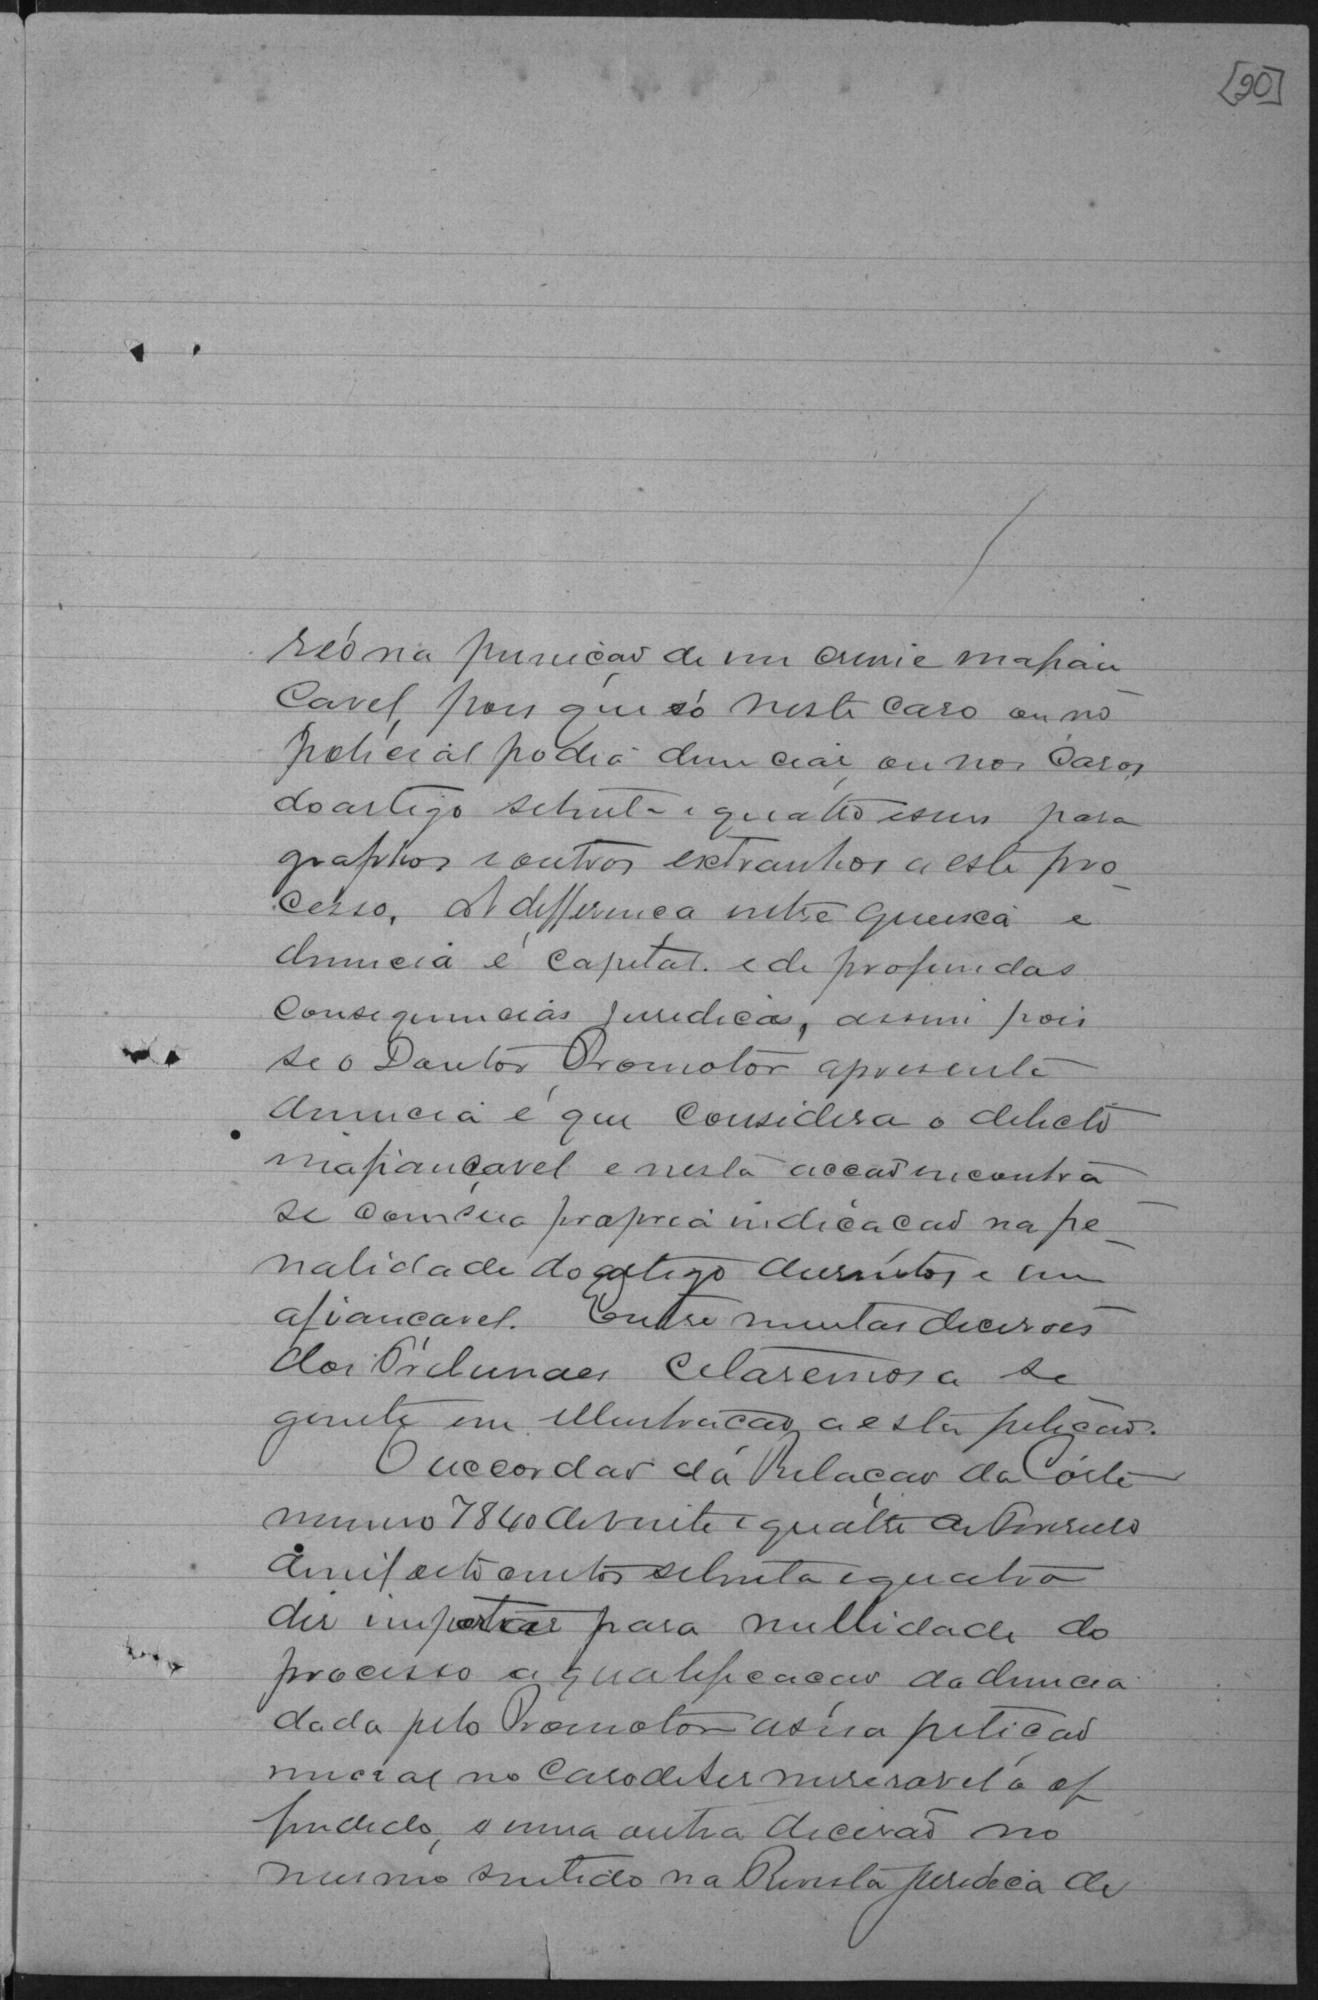 [90]
réo na punição de um crime inafian
çavel, pois que só neste caso ou no
policial podia denunciar, ou nos casos
do artigo setenta e quatro e seus para
graphos e outros extranhos a este pro-
cesso. A differença entre queixa e
denuncia é capital e de profundas
consequencias juridicas, assim pois
se o Doutor Promotor apresenta
denuncia é que considera o delicto
inafiançavel e nesta acção encontra
se com sua propria indicação na pe-
nalidade do artigo duzentos e um
afiançavel. Entre muitas decisões
dos Tribunaes citaremos a se
guinte em illustração a esta petição.
O accordão da Relação da Côrte
numero 7840 de vinte e quatro de Fevereiro
de mil oito centos setenta e quatro
diz importar para nullidade do
processo a qualificação da denuncia
dada pelo Promotor a sua petição
inicial no caso de ser miseravel o of
fendido, e numa outra decisão no
mesmo sentido na Revista Juridica de